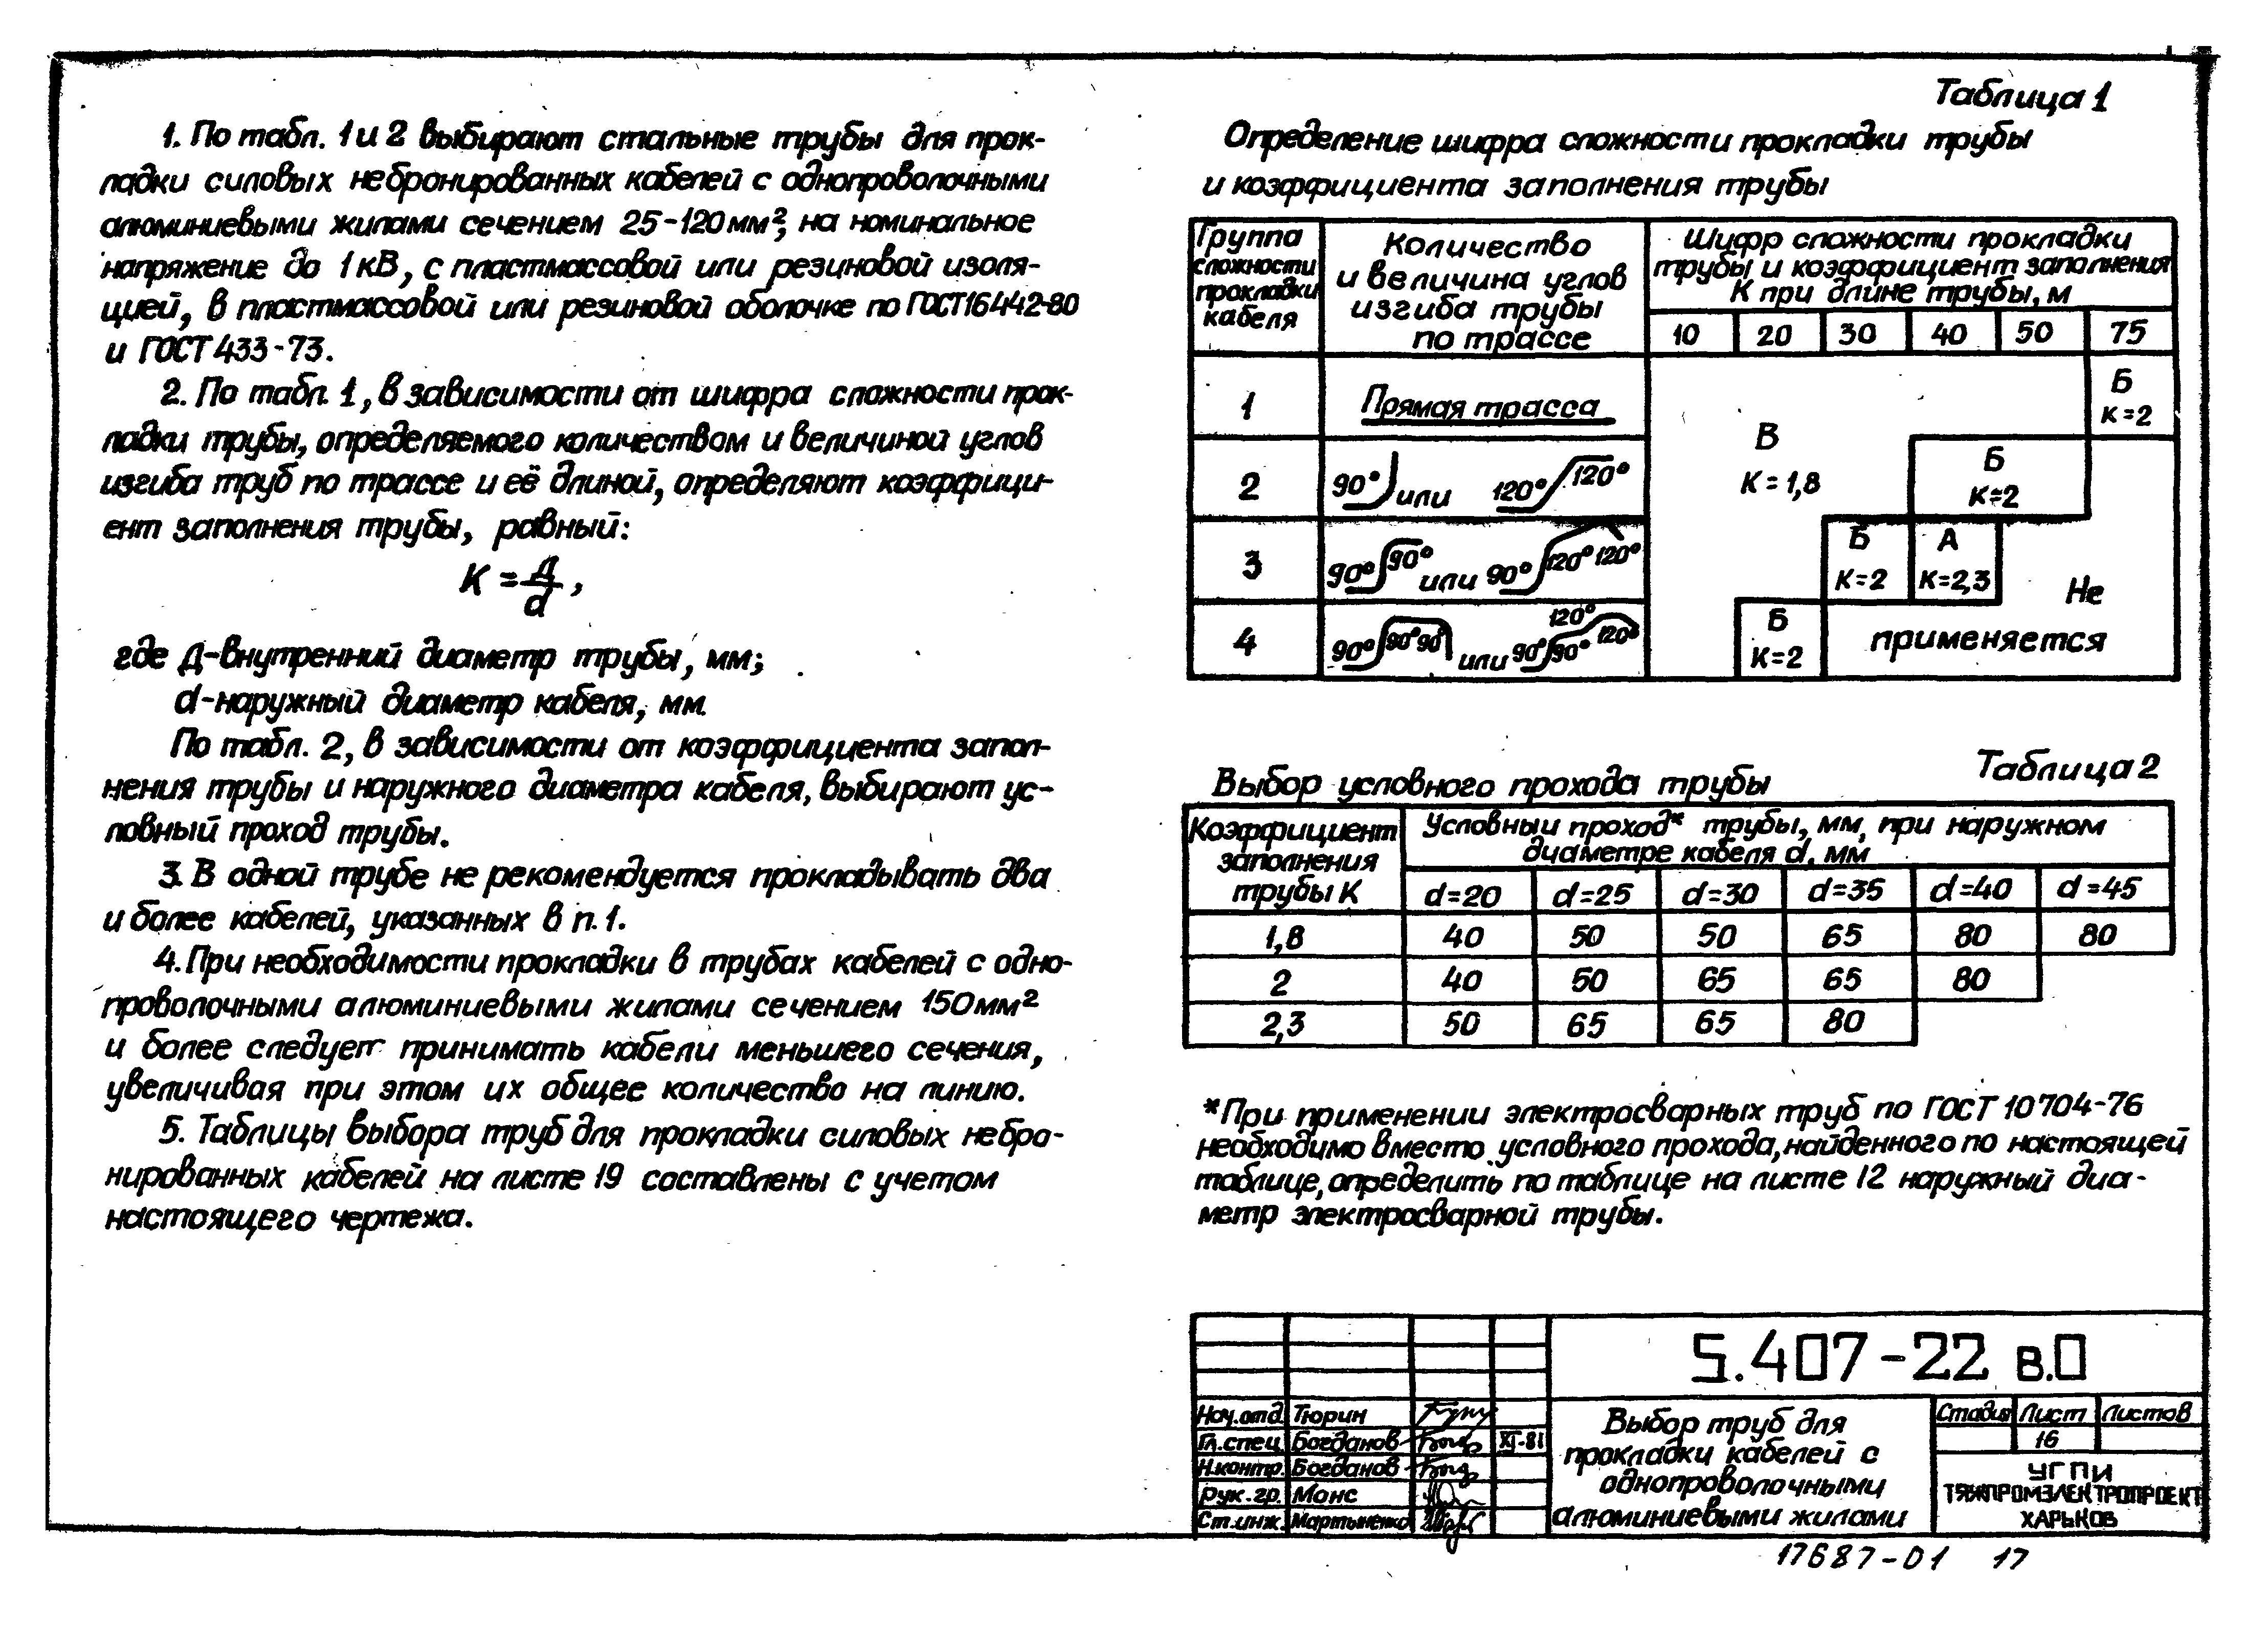 1. По табл. 1 и 2 выбирают стальные трубы для прок-
ладки силовых небронированных кабелей с однопроволочными
алюминиевыми жилами сечением 25-120 мм², на номинальное
напряжение до 1 кВ, с пластмассовой или резиновой изоля-
цией, в пластмассовой или резиновой оболочке по ГОСТ 16442-80
и ГОСТ 433-73.
2. По табл. 1, в зависимости от шифра сложности прок-
ладки трубы, определяемого количеством и величиной углов
изгиба труб по трассе и её длиной, определяют коэффици-
ент заполнения трубы, равный:
К = Д/d,
где Д-внутренний диаметр трубы, мм;
d-наружный диаметр кабеля, мм.
По табл. 2, в зависимости от коэффициента запол-
нения трубы и наружного диаметра кабеля, выбирают ус-
ловный проход трубы.
3. В одной трубе не рекомендуется прокладывать два
и более кабелей, указанных в п. 1.
4. При необходимости прокладки в трубах кабелей с одно-
проволочными алюминиевыми жилами сечением 150 мм²
и более следует принимать кабели меньшего сечения,
увеличивая при этом их общее количество на линию.
5. Таблицы выбора труб для прокладки силовых небро-
нированных кабелей на листе 19 составлены с учетом
настоящего чертежа.
Таблица 1
Определение шифра сложности прокладки трубы
и коэффициента заполнения трубы
Группа сложности прокладки кабеля
Количество и величина углов изгиба трубы по трассе
Шифр сложности прокладки
трубы и коэффициент заполнения
К при длине трубы, м
10 20 30 40 50 75
1 Прямая трасса
Б К=2
В К=1,8
2 90° или 120° 120°
Б К=2
3 90° 90° или 90° 120° 120°
Б К=2 А К=2,3
4 90° 90° 90° или 90° 90° 120° 120°
Б К=2
Не
применяется
Таблица 2
Выбор условного прохода трубы
Коэффициент заполнения трубы К
Условный проход* трубы, мм, при наружном
диаметре кабеля d, мм
d=20 d=25 d=30 d=35 d=40 d=45
1,8 40 50 50 65 80 80
2 40 50 65 65 80
2,3 50 65 65 80
*При применении электросварных труб по ГОСТ 10704-76
необходимо вместо условного прохода, найденного по настоящей
таблице, определить по таблице на листе 12 наружный диа-
метр электросварной трубы.
5.407-22 в.0
Нач.отд. Тюрин
Гл.спец. Богданов XI-81
Н.контр. Богданов
Рук.гр. Монс
Ст.инж. Мартыненко
Выбор труб для
прокладки кабелей с
однопроволочными
алюминиевыми жилами
Стадия Лист Листов
16
УГПИ
ТЯЖПРОМЭЛЕКТРОПРОЕКТ
ХАРЬКОВ
17687-01 17